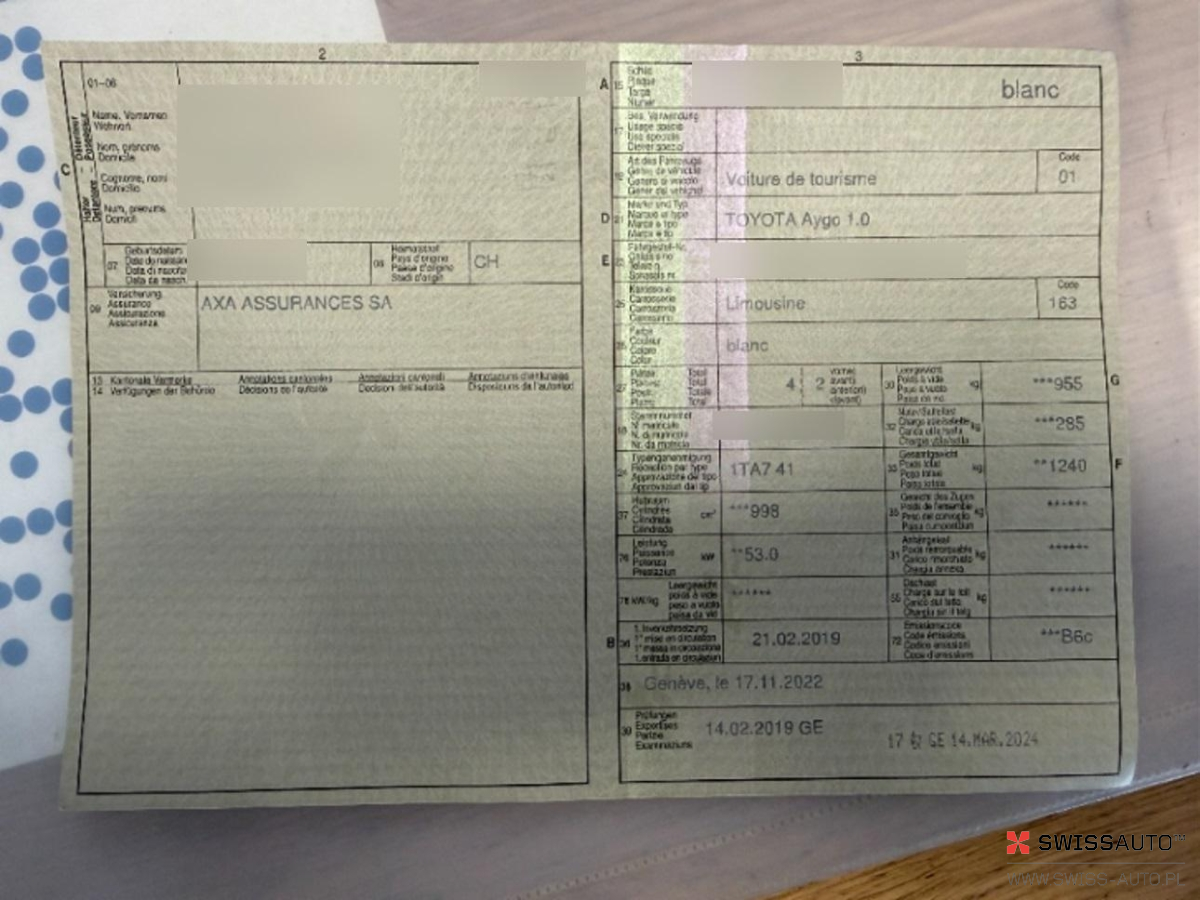 2
01-06
Name, Vornamen
Wohnort
Nom, prénoms
Domicile
Cognome, nomi
Domicilio
Num, prenums
Domicil
C
Halter
Détenteur
07
Geburtsdatum
08
Heimatstaat
Pays d'origine
Paese d'origine
Stadi d'origin
CH
09
Versicherung
Assurance
Assicurazione
Assicuranza
AXA ASSURANCES SA
13 Kantonale Vermerke Annotations cantonales Annotazioni cantonali Annotaziuns chantunalas
14 Verfügungen der Behörde Décisions de l'autorité Decisioni dell'autorità Disposiziuns da l'autoritad
3
A
15
Schild
Plaque
Targa
Numer
blanc
17
Bes. Verwendung
Usage spécial
Uso speciale
Diever spezial
Art des Fahrzeugs
Genre de véhicule
Genere di veicolo
Gener dal vehichel
Voiture de tourisme
Code
01
D
21
Marke und Typ
Marque et type
Marca e tipo
Marca e tip
TOYOTA Aygo 1.0
E
Fahrgestell-Nr.
Châssis no
Telaio n.
Schassis nr.
25
Karosserie
Carrosserie
Carrozzeria
Carossaria
Limousine
Code
163
26
Farbe
Couleur
Colore
Color
blanc
27
Total
Total
Totale
Total
4
2
vorne
avant
anteriori
davant
30
Leergewicht
Poids à vide
Peso a vuoto
kg
***955
G
18
Stammnummer
N. matricule
N. di matricola
Nr. da matricla
32
kg
***285
24
Typengenehmigung
Réception par type
Approvazione del tipo
Approvaziun dal tip
1TA7 41
33
Gesamtgewicht
Poids total
Peso totale
Paisa totala
kg
**1240
F
37
Hubraum
Cylindrée
Cilindrata
Cilindrada
cm³
***998
35
Gewicht des Zuges
Poids de l'ensemble
Peso del convoglio
Paisa cumposiziun
kg
******
76
Leistung
Puissance
Potenza
Prestaziun
kW
**53.0
31
Anhängelast
Poids remorquable
Carico rimorchiato
Chargia annexa
kg
******
78
kW/kg
Leergewicht
poids à vide
peso a vuoto
paisa da vid
******
55
Dachlast
Charge sur le toit
Carico sul tetto
Chargia sin il tetg
kg
******
B
36
1. Inverkehrsetzung
1re mise en circulation
1a messa in circolazione
1. entrada en circulaziun
21.02.2019
72
Emissionscode
Code émissions
Codice emissioni
Code d'emissiuns
***B6c
38
Genève, le 17.11.2022
39
Prüfungen
Expertises
Perizie
Examinaziuns
14.02.2019 GE
17
GE 14.MAR.2024
SWISSAUTO
WWW.SWISS-AUTO.PL